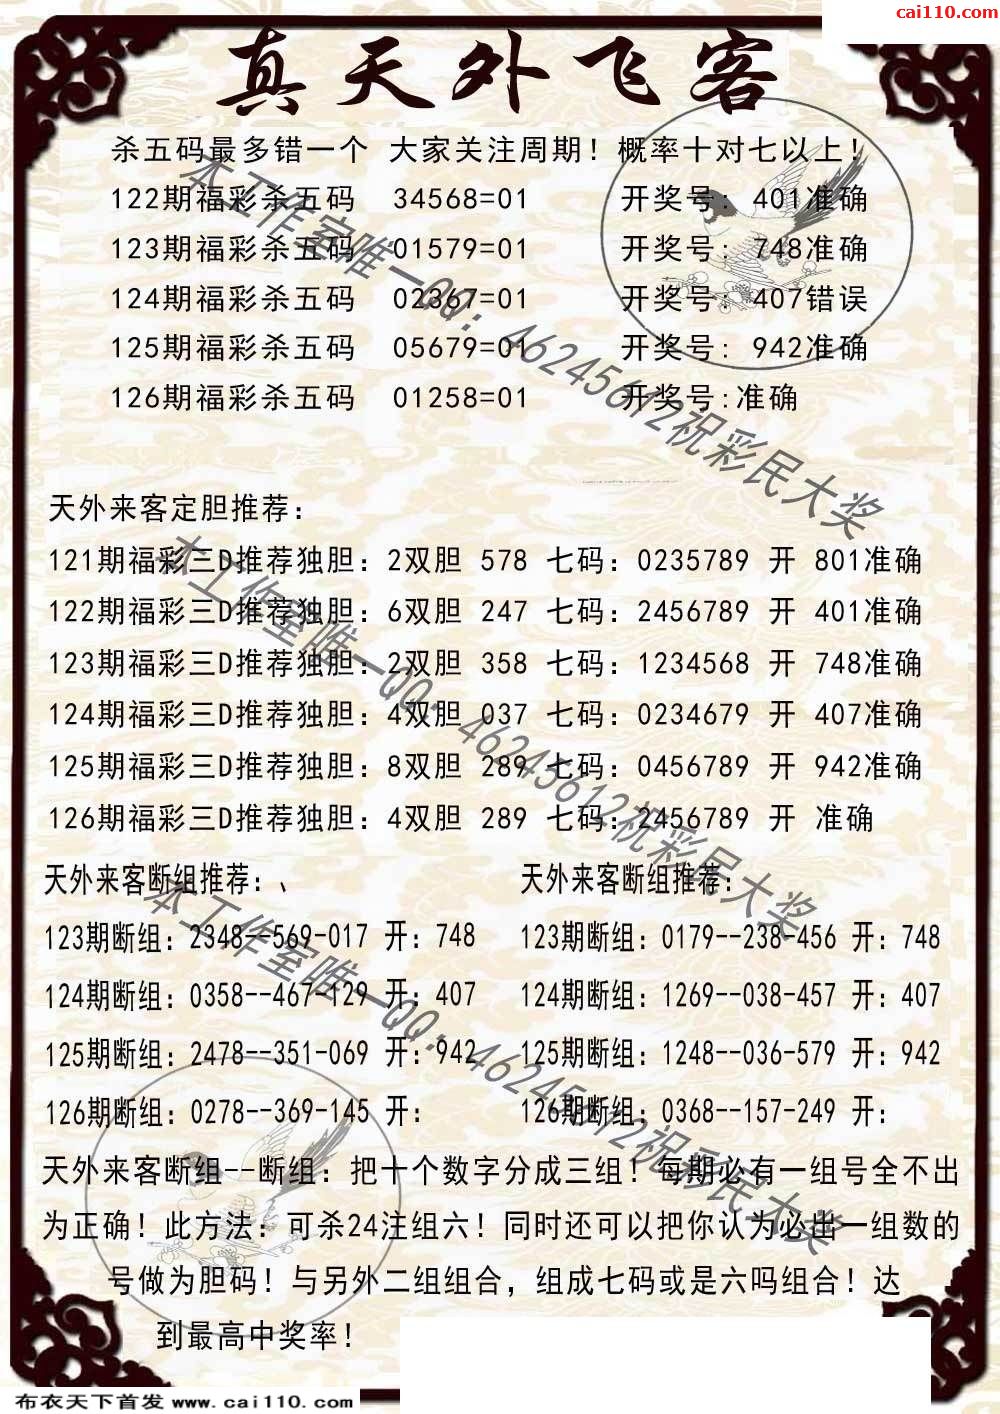 cai110.com
真天外飞客
杀五码最多错一个 大家关注周期！概率十对七以上！
122期福彩杀五码 34568=01 开奖号：401准确
123期福彩杀五码 01579=01 开奖号：748准确
124期福彩杀五码 02367=01 开奖号：407错误
125期福彩杀五码 05679=01 开奖号：942准确
126期福彩杀五码 01258=01 开奖号:准确
本工作室唯一QQ：46245612祝彩民大奖
天外来客定胆推荐：
121期福彩三D推荐独胆：2双胆 578 七码：0235789 开 801准确
122期福彩三D推荐独胆：6双胆 247 七码：2456789 开 401准确
123期福彩三D推荐独胆：2双胆 358 七码：1234568 开 748准确
124期福彩三D推荐独胆：4双胆 037 七码：0234679 开 407准确
125期福彩三D推荐独胆：8双胆 289 七码：0456789 开 942准确
126期福彩三D推荐独胆：4双胆 289 七码：2456789 开 准确
本工作室唯一QQ：46245612祝彩民大奖
天外来客断组推荐：、 天外来客断组推荐：
123期断组：2348--569-017 开：748 123期断组：0179--238-456 开：748
124期断组：0358--467-129 开：407 124期断组：1269--038-457 开：407
125期断组：2478--351-069 开：942 125期断组：1248--036-579 开：942
126期断组：0278--369-145 开： 126期断组：0368--157-249 开：
本工作室唯一QQ：46245612祝彩民大奖
天外来客断组--断组：把十个数字分成三组！每期必有一组号全不出
为正确！此方法：可杀24注组六！同时还可以把你认为必出一组数的
号做为胆码！与另外二组组合，组成七码或是六吗组合！达
到最高中奖率！
布衣天下首发 www.cai110.com